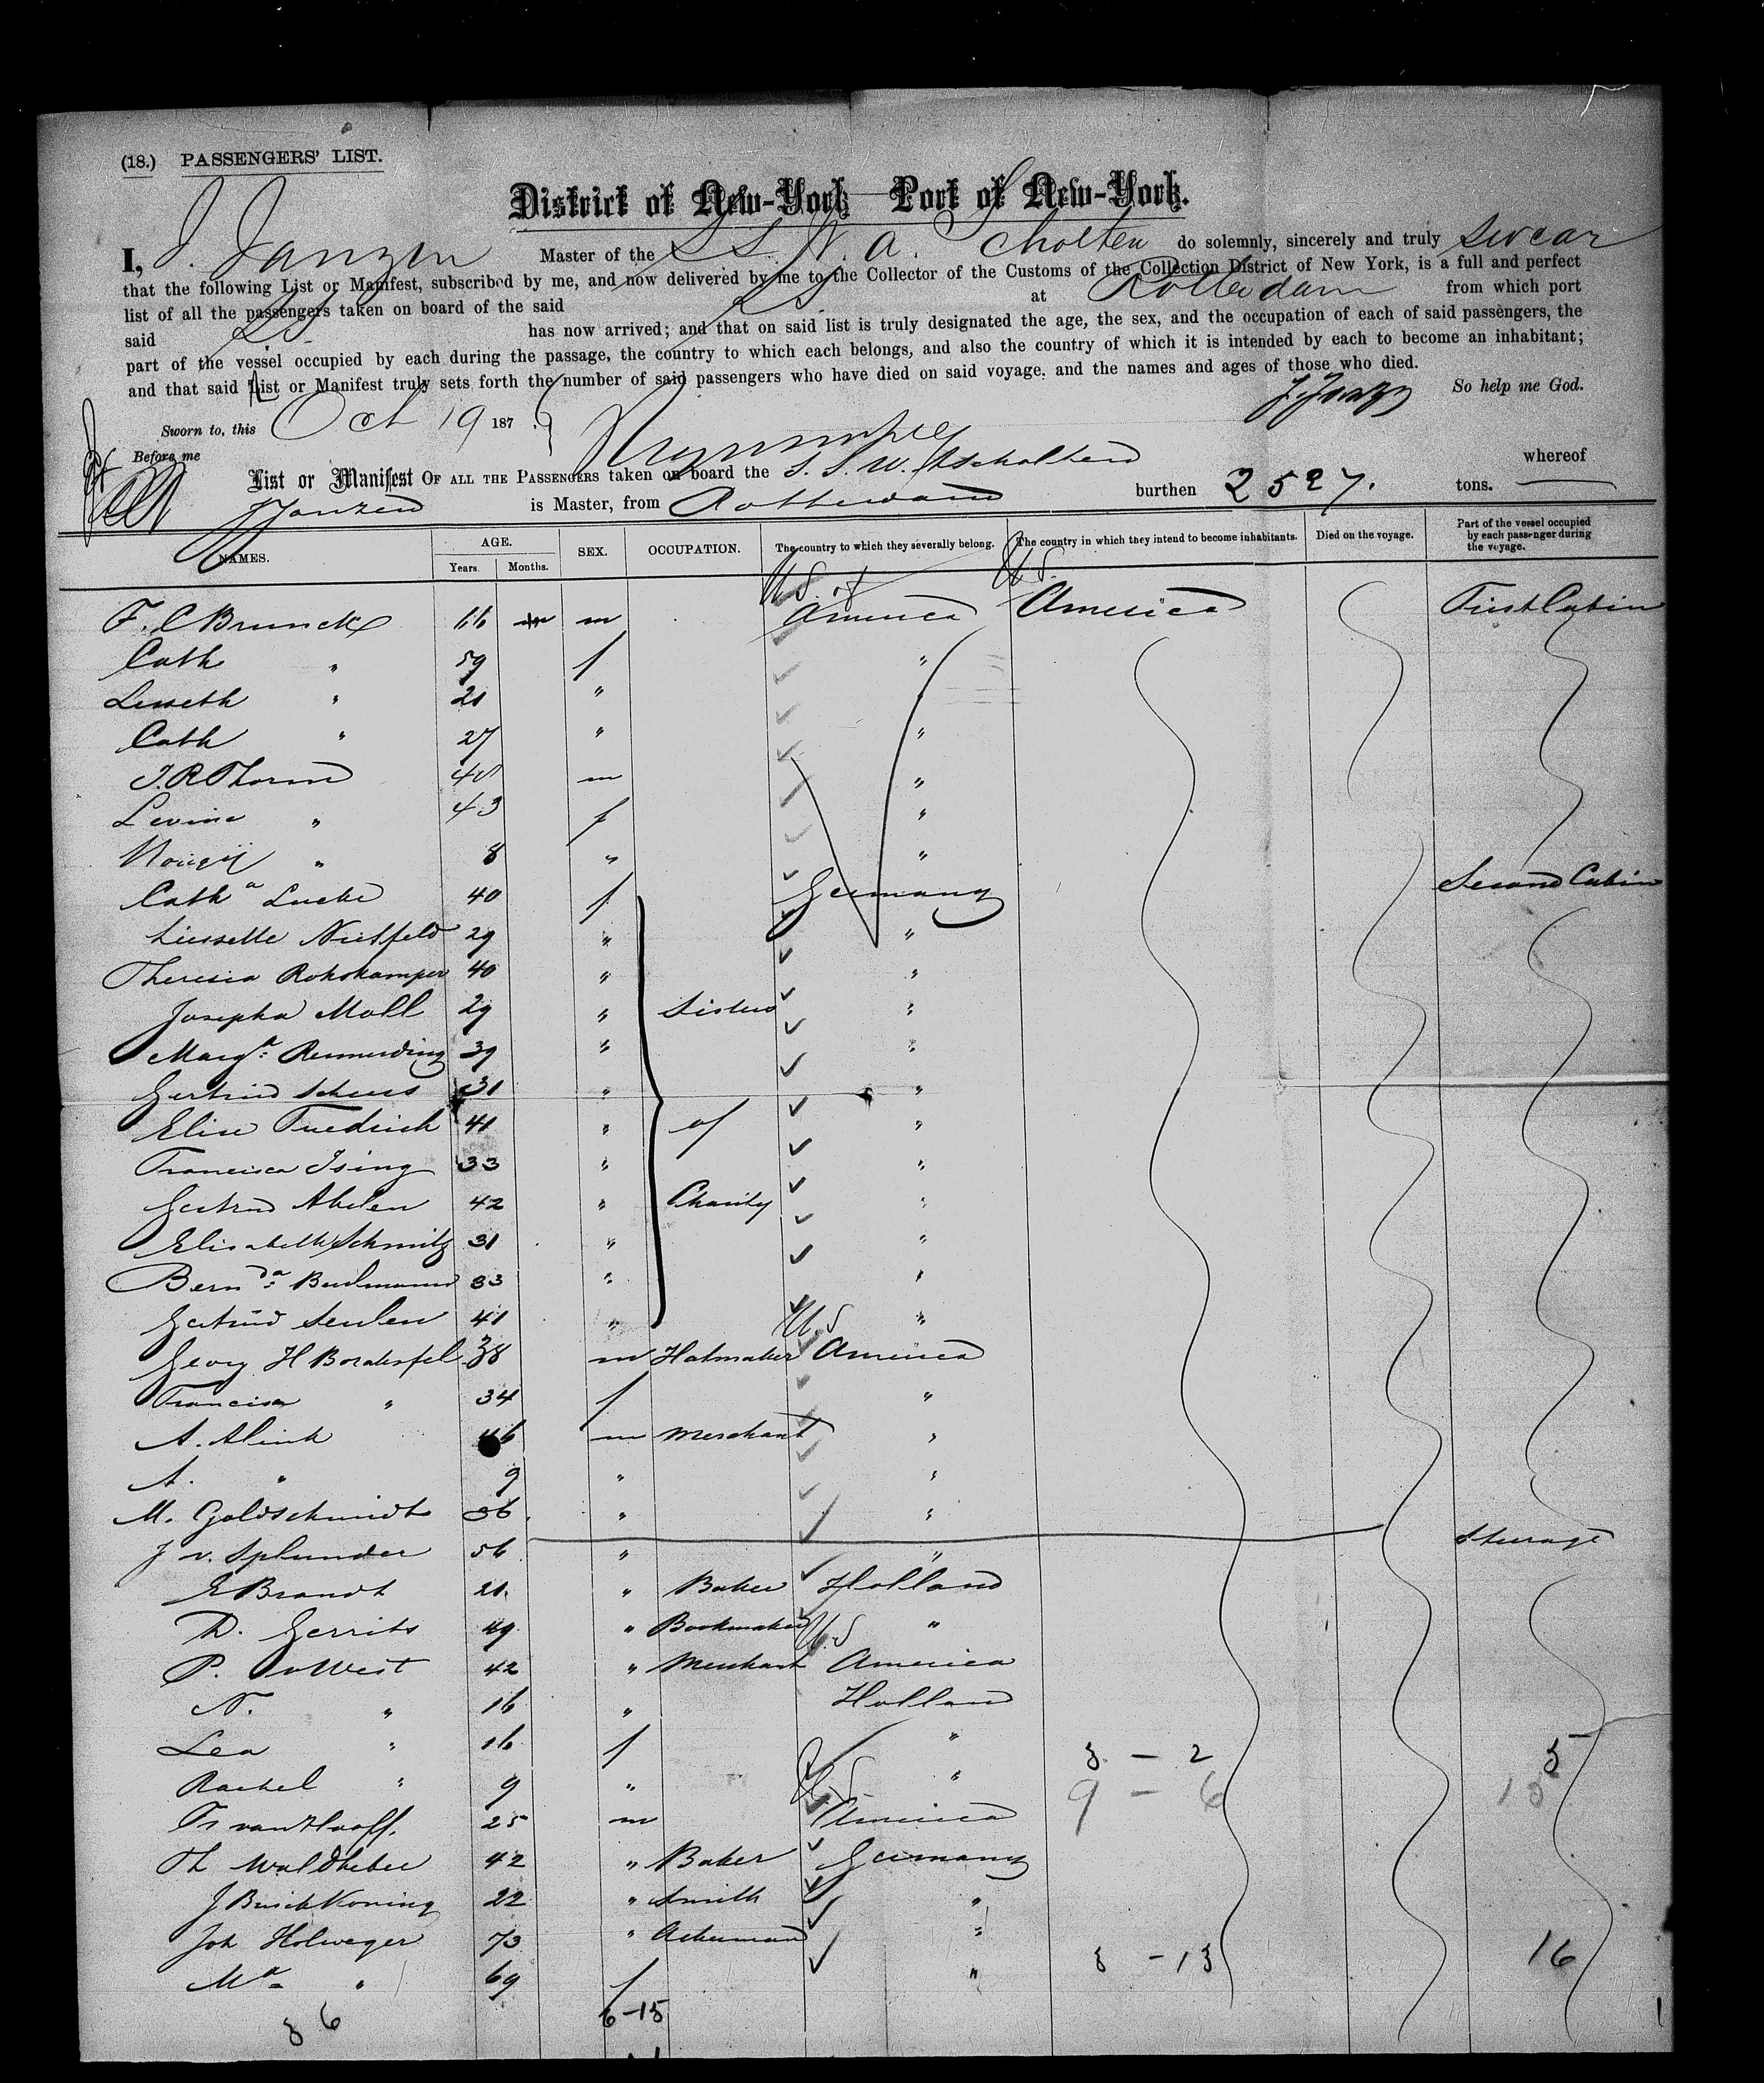 (18.) PASSENGERS' LIST.
District of New-York Port of New-York.
I, J. Janzen Master of the S.S. W. A. Scholten do solemnly, sincerely and truly swear
that the following List or Manifest, subscribed by me, and now delivered by me to the Collector of the Customs of the Collection District of New York, is a full and perfect
list of all the passengers taken on board of the said SS at Rotterdam from which port
said SS has now arrived; and that on said list is truly designated the age, the sex, and the occupation of each of said passengers, the
part of the vessel occupied by each during the passage, the country to which each belongs, and also the country of which it is intended by each to become an inhabitant;
and that said List or Manifest truly sets forth the number of said passengers who have died on said voyage, and the names and ages of those who died.
So help me God.
Sworn to, this Oct 19 187 9
Before me
List or Manifest OF ALL THE PASSENGERS taken on board the S. S. W. A Scholten whereof
J Janzen is Master, from Rotterdam burthen 2527. tons.
NAMES. AGE. Years. Months. SEX. OCCUPATION. The country to which they severally belong. The country in which they intend to become inhabitants. Died on the voyage. Part of the vessel occupied by each passenger during the voyage.
F. C Brunck 66 m U.S. of America U.S. America First Cabin
Cath " 59 f "
" 21 "
Cath " 27 " "
J. R Thorn m "
Levina " 43 f "
" 8 " "
Cath a Lucke 40 f Germany Second Cabin
Liessette Nietfeld 29 " "
Theresia Rokokamper 40 " "
Josepha Moll 29 " Sisters "
Marg a: 39 " "
Gertrud Schees 31 " "
Elise Friedrich 41 " of "
Francisca Ising 33 " "
Gertrud Abelen 42 " Charity "
Elisabeth Schmitz 31 " "
Bern da: 33 " "
Gertrud Senlen 41 " "
Georg H 38 m Hatmaker U.S America
Francisca " 34 f "
A. Alink 46 m Merchant "
A. " 9 " "
M. Goldschmidt 36 " "
J v. Splunder 56 " " Steerage
E Brandt 21 " Baker Holland
D. Gerrits 49 " Bookmaker "
P. v West 42 " Merchant U.S America
N. " 16 " Holland
Lea " 16 f " 3 - 2 5
Rachel " 9 " " 9 - 6 15
Fr van Hooff. 25 m U.S America
Th 42 " Baker Germany
J Buschkoning 22 " Smith "
Joh Holweger 73 " Ackerman "
Ma " 69 f " 3 - 13 16
36 6-15